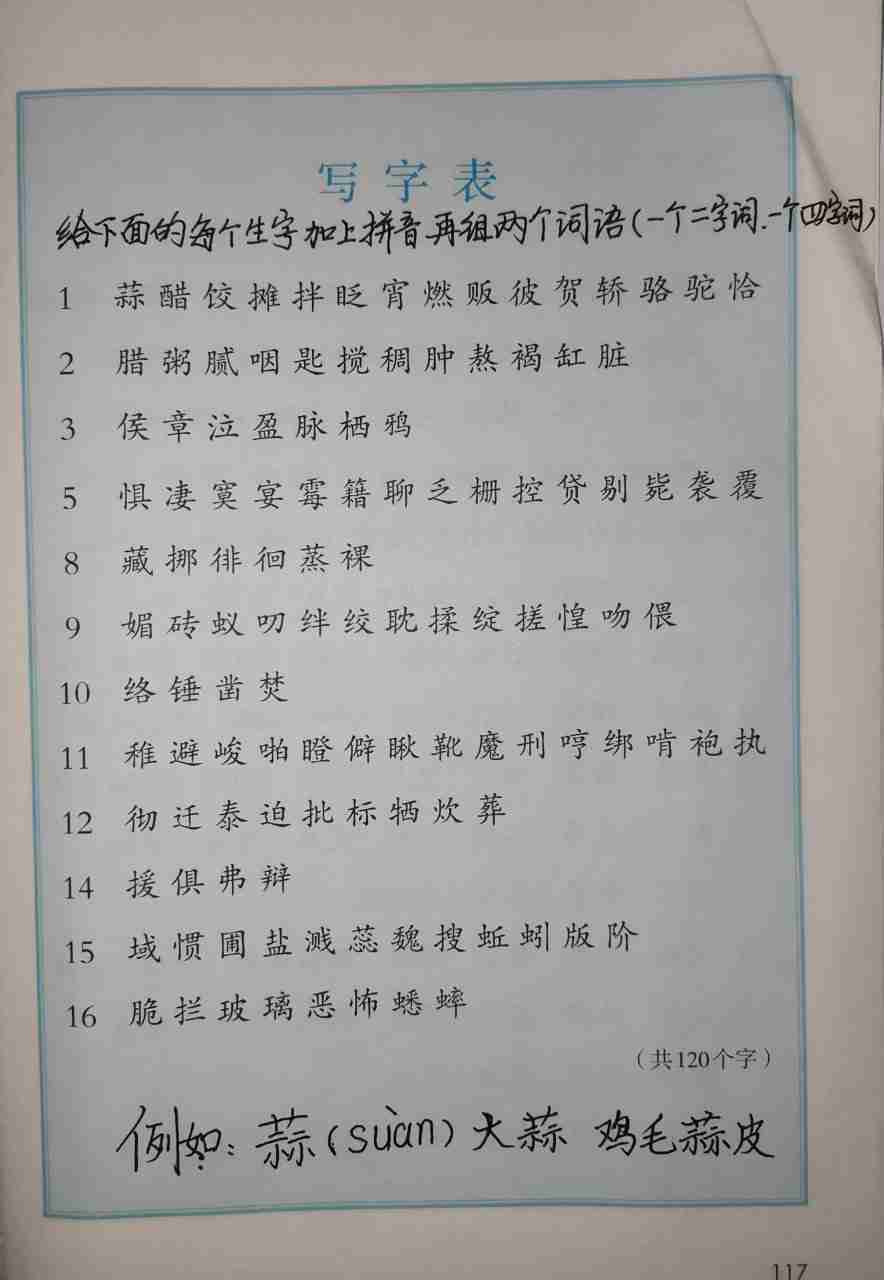 写字表
给下面的每个生字加上拼音再组两个词语(一个二字词.一个四字词)
1 蒜醋饺摊拌眨宵燃贩彼贺轿骆驼恰
2 腊粥腻咽匙搅稠肿熬褐缸脏
3 侯章泣盈脉栖鸦
5 惧凄寞宴霉籍聊乏栅控贷剔毙袭覆
8 藏挪徘徊蒸裸
9 媚砖蚁叨绊绞耽揉绽搓惶吻偎
10 络锤凿焚
11 稚避峻啪瞪僻瞅靴魔刑哼绑啃袍执
12 彻迁泰迫批标牺炊葬
14 援俱弗辩
15 域惯圃盐溅蕊魏搜蚯蚓版阶
16 脆拦玻璃恶怖蟋蟀
（共120个字）
例如：蒜(suàn)大蒜 鸡毛蒜皮
117